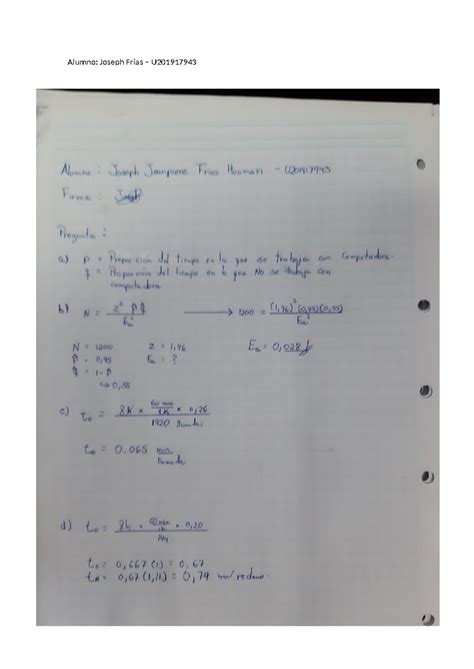 Alumno: Joseph Frías – U201917943
Alumno : Joseph Jeanpierre Frias Huaman - U201917943
Firma :
Pregunta :
a) P = Proporción del tiempo en la que se trabaja con Computadora.
q = Proporción del tiempo en la que No se trabaja con
computadora
b) N = Z² P q / Ea² → 1200 = (1,96)² (0,45)(0,55) / Ea²
N = 1200 Z = 1,96 Ea = 0,028
P = 0,45 Ea = ?
q = 1-P
↳ 0,55
c) to = 8h × 60 min / 1h × 0,26 / 1920
to = 0.065 min
d) to = 8h × 60 min / 1h × 0,20 / 144
ts = 0,667 (1) = 0,67
tN = 0,67 (1,11) = 0,74